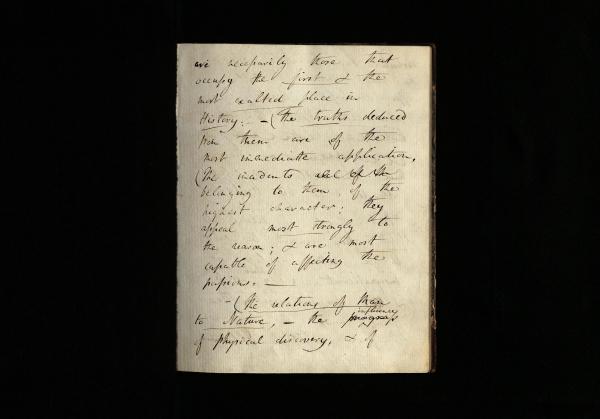 are necessarily those that
occupy the first & the
most exalted place in
History. — (the truths deduced
from them are of the
most immediate application.
(The incidents
belonging to them, of the
highest character; they
appeal most strongly to
the reason; & are most
capable of affecting the
passions. —
(The relations of Man
influence
to Nature, — the progress
of physical discovery, & of